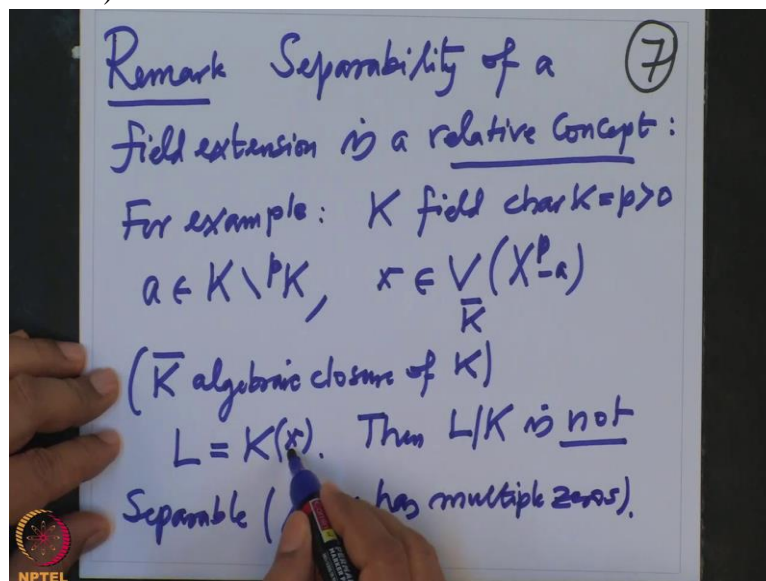 Remark Separability of a 7
field extension is a relative concept:
For example: K field char K = p > 0
a ∈ K \ ᵖK, x ∈ V_K̄ (X^p - a)
(K̄ algebraic closure of K)
L = K(x). Then L/K is not
Separable ( has multiple zeros).
NPTEL